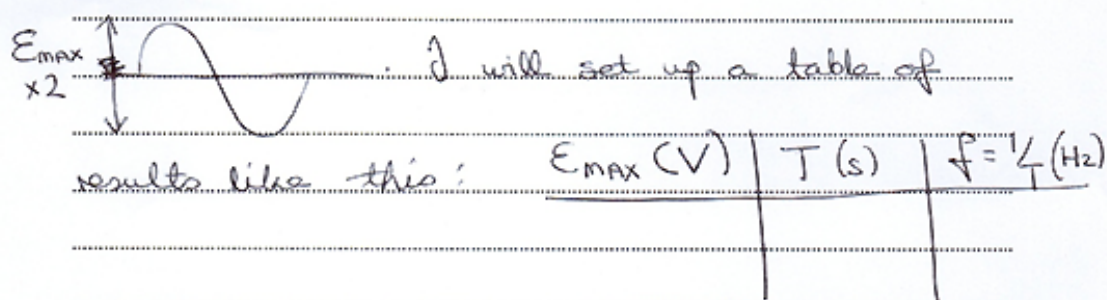 Ɛmax
x2
. I will set up a table of
results like this: Ɛmax (V) | T (s) | f = 1/T (Hz)